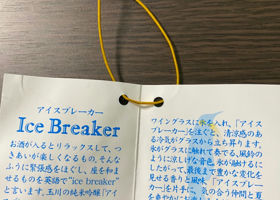 アイスブレーカー
Ice Breaker
お酒が入るとリラックスして、つ
きあいが楽しくなるもの。そんな
ふうに緊張感をほぐし、座を和ま
せるものを英語で“ice breaker”
と言います。玉川の純米吟醸「アイ
ワイングラスに氷を入れ、「アイス
ブレーカー」を注ぐと、清涼感のあ
る冷気がグラスから立ち昇ります。
氷がグラスに触れて奏でる、風鈴の
ように涼しげな音色。氷が融けるに
したがって、最後まで豊かな変化を
見せる香りと風味。「アイスブレー
カー」を片手に、気の合う仲間と夏